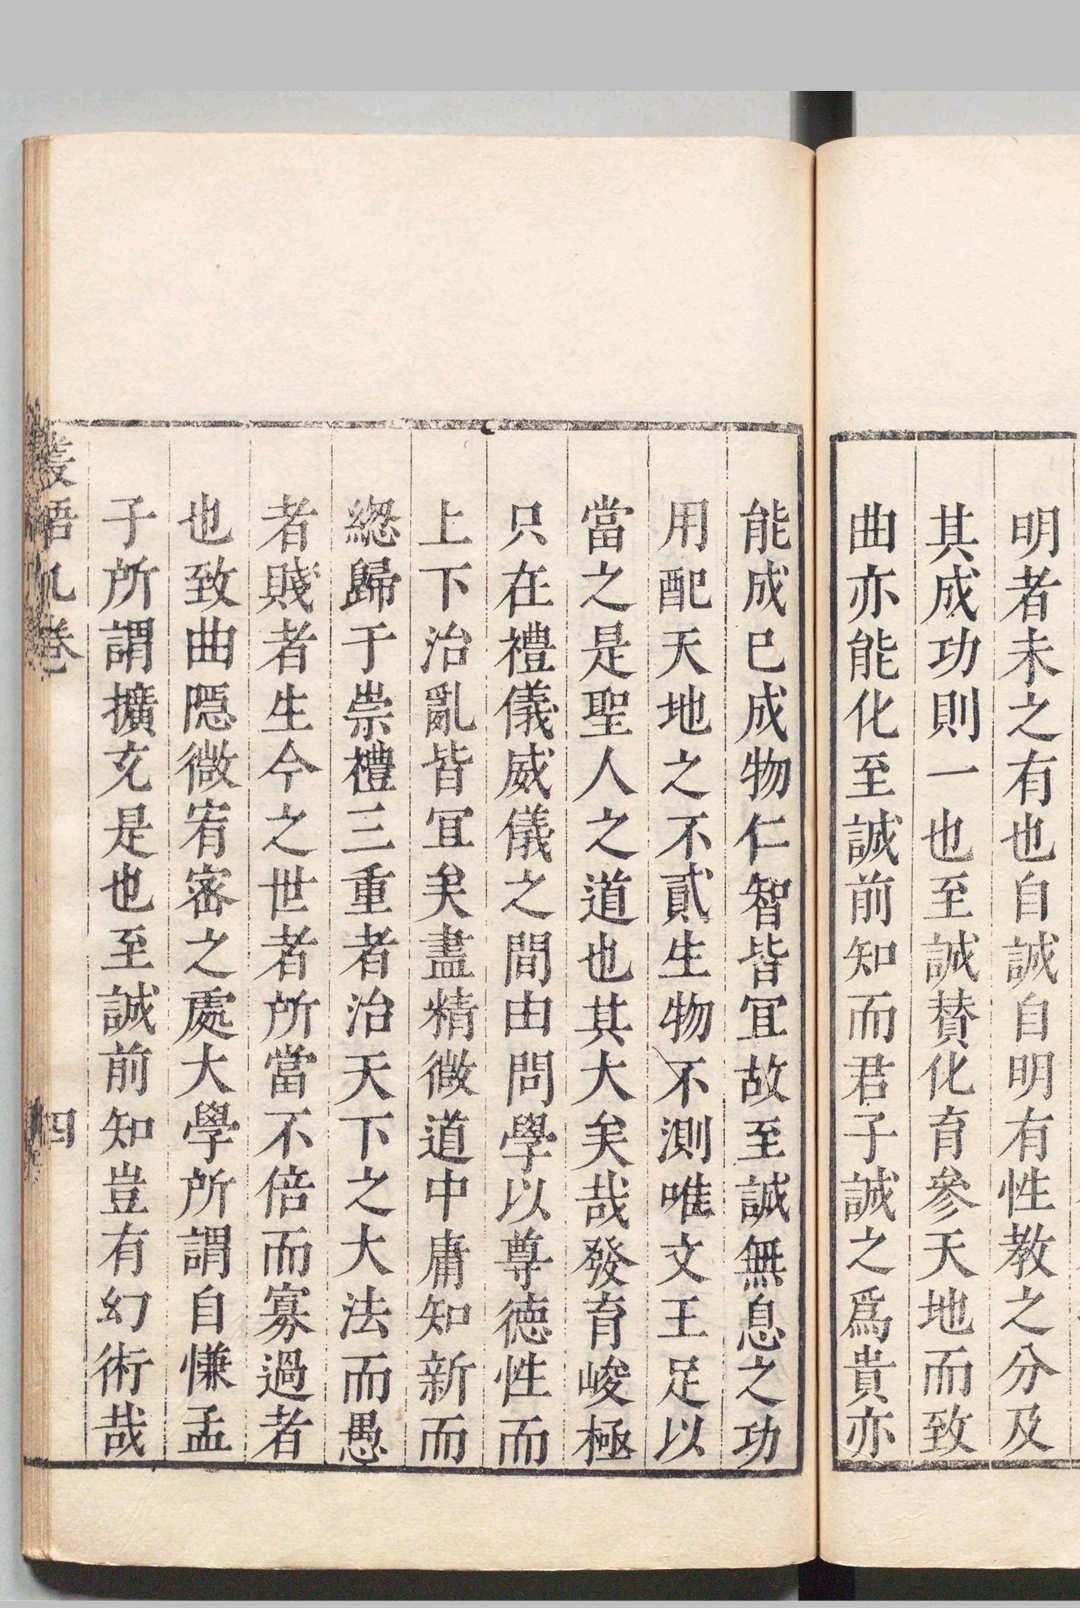 明者未之有也自誠自明有性教之分及
其成功則一也至誠賛化育參天地而致
曲亦能化至誠前知而君子誠之爲貴亦
能成巳成物仁智皆冝故至誠無息之功
用配天地之不貳生物不測唯文王足以
當之是聖人之道也其大矣哉發育峻極
只在禮儀威儀之間由問學以尊德性而
上下治亂皆冝矣盡精微道中庸知新而
緫歸于崇禮三重者治天下之大法而愚
者賤者生今之世者所當不倍而寡過者
也致曲隠微宥密之處大學所謂自慊孟
子所謂擴充是也至誠前知豈有幻術哉
卷
四